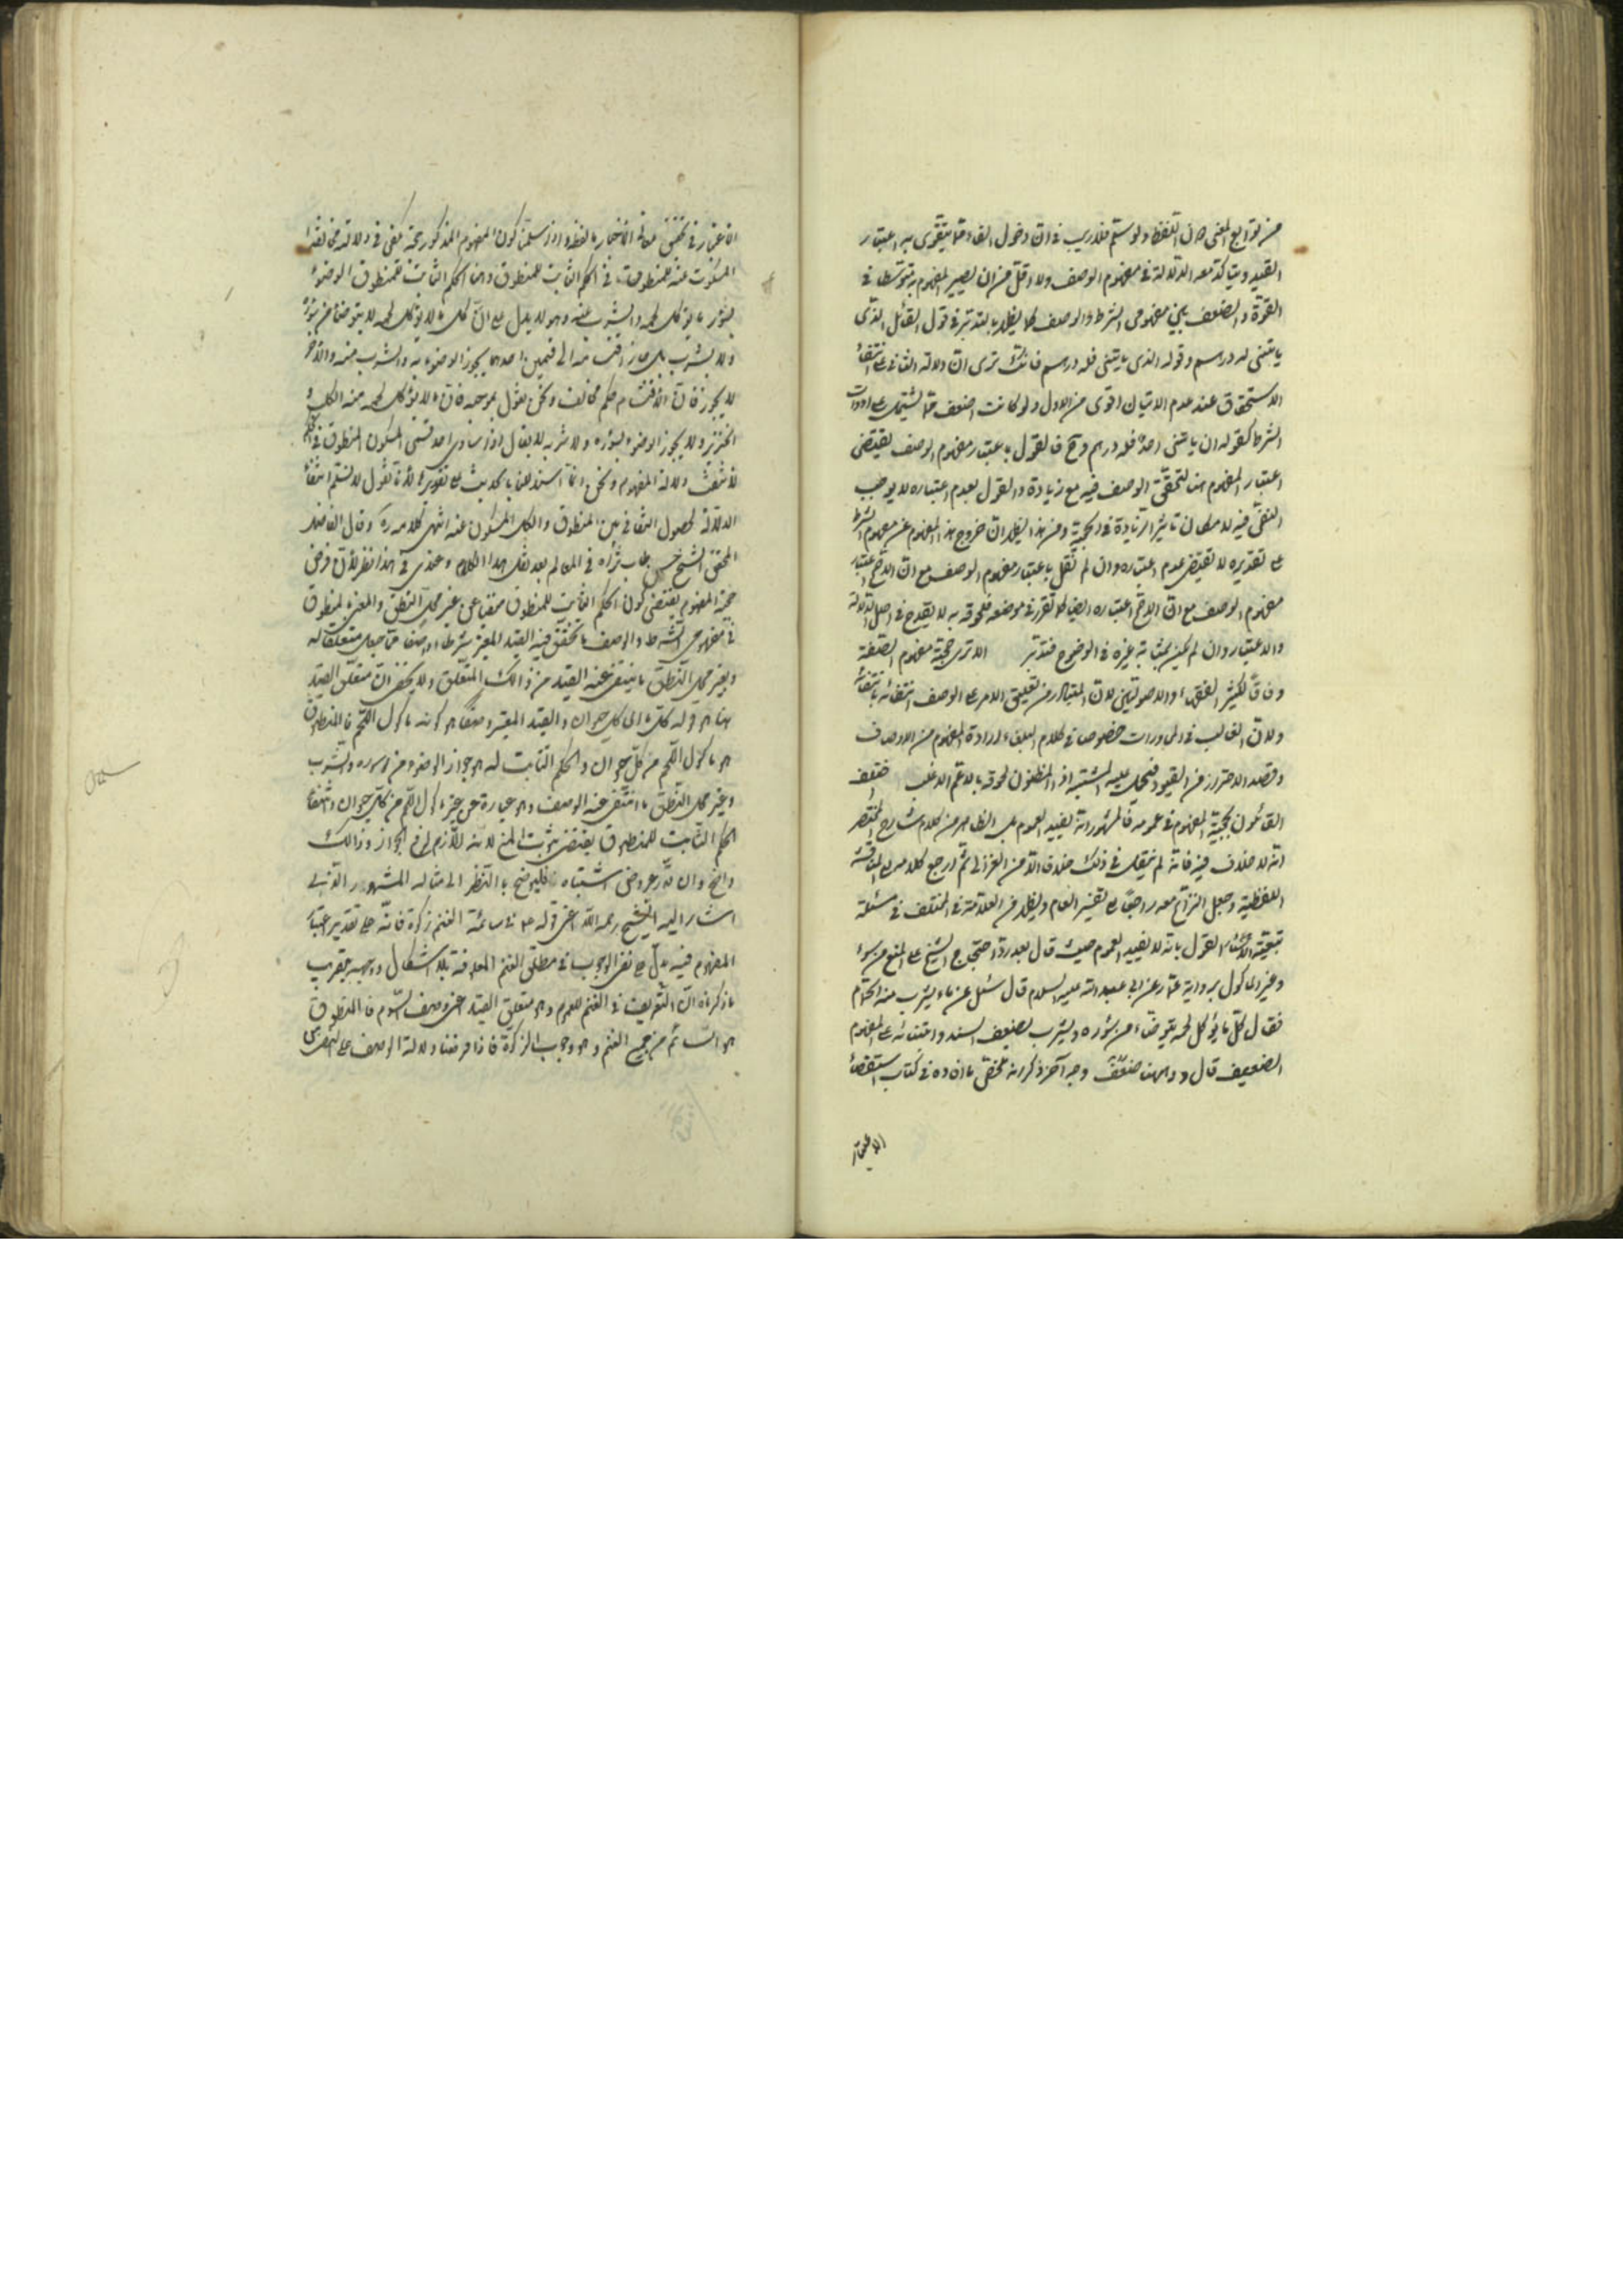 من توابع المعنى دون اللفظ ولو سلم فلا ريب في ان دخول الفاء مما يتقوى به اعتبار
القيد ويتأكد معه الدلالة في مفهوم الوصف ولا اقل من ان يصير المفهوم به متوسطا في
القوة والضعف بين مفهومي الشرط والوصف كما يظهر بالتدبر في قول القائل الذي
ياتيني له درهم وقوله الذي ياتيني فله درهم فانك ترى ان دلالة الثاني على انتفاء
الاستحقاق عند عدم الاتيان اقوى من الاول ولو كانت اضعف مما يشتمل على ادوات
الشرط كقوله ان ياتيني احد فله درهم وح فالقول باعتبار مفهوم الوصف يقتضى
اعتبار المفهوم هنا لتحقق الوصف فيه مع زيادة والقول بعدم اعتباره لا يوجب
النفي فيه لامكان تاثير الزيادة في الحجية ومن هذا يظهر ان خروج هذا المفهوم عن مفهوم الشرط
على تقديره لا يقتضى عدم اعتباره وان لم نقل باعتبار مفهوم الوصف مع ان الاصح اعتبار
مفهوم الوصف مع ان الاصح اعتباره ايضا كما تقرر في موضعه فلحوقه به لا يقدح في اصل الدلالة
والاعتبار وان لم يكن بمثابة غيره في الوضوح فتدبر الا ترى حجية مفهوم الصفة
وفاقا لكثير الفقهاء والاصوليين لان المتبادر من تعليق الامر على الوصف انتفائه بانتفائه
ولان الغالب في المحاورات خصوصا في كلام البلغاء ارادة المفهوم من الاوصاف
وقصد الاحتراز عن القيود فيحمل عليه المشتبه اذ المظنون لحوقه بالاعم الاغلب اختلف
القائلون بحجية المفهوم في عمومه فالمشهور انه يفيد العموم بل الظاهر من كلام شارح المختصر
انه لا خلاف فيه فانه لم ينقل في ذلك خلاف الا من الغزالي ثم ارجع كلامه الى المناقشة
اللفظية وجعل النزاع معه راجعا الى تفسير العام ويظهر من العلامة في المختلف في مسئلة
تبعية الاسئار القول بانه لا يفيد العموم حيث قال بعد رد احتجاج الشيخ على المنع من سؤر
وغير الماكول برواية عمار عن ابي عبد الله عليه السلام قال سئل عن ماء يشرب منه الحمام
فقال كل ما يؤكل لحمه يتوضأ من سؤره ويشرب بضعف السند وابتنائه على المفهوم
الضعيف قال وههنا وجه آخر ذكرناه في كتاب استقصاء
الاعتبار
الاعتبار في تحقيق معاني الاخبار بالفظه واذا سلمنا كون المفهوم المذكور حجة كفى في دلالته مخالفة
المسكوت عنه للمنطوق في الحكم الثابت للمنطوق وهنا الحكم الثابت للمنطوق الوضوء
بسؤر ما يؤكل لحمه والشرب منه وهو لا يدل على ان كل ما لا يؤكل لحمه لا يتوضأ من سؤره
ولا يشرب بل جاز انقسامه الى قسمين احدهما يجوز الوضوء به والشرب منه والآخر
لا يجوز فان الانقسام حكم مخالف ونحن نقول بموجبه فان ما لا يؤكل لحمه منه الكلب و
الخنزير ولا يجوز الوضوء بسؤره ولا شربه لا يقال اذا تساوى احد قسمي المسكوت المنطوق في الحكم
انتفت دلالة المفهوم ونحن انما استدللنا بالحديث على تقديره لانا نقول لا نسلم انتفاء
الدلالة لحصول التنافي بين المنطوق والكل المسكوت عنه انتهى كلامه ره وقال الفاضل
المحقق الشيخ حسن طاب ثراه في المعالم بعد نقل هذا الكلام وعندي في هذا نظر لان فرض
حجية المفهوم يقتضى كون الحكم الثابت للمنطوق منفيا عن غير محل النطق والمعتبر لمنطوق
في مفهومي الشرط والوصف ما تحقق فيه القيد المعتبر شرطا او وصفا مما جعل متعلقا له
وبغير محل النطق ما ينتفى عنه القيد من ذالك المتعلق ولا يخفى ان متعلق القيد
هنا هو قوله كل ما اى كل حيوان والقيد المعتبر وصفا هو كونه ماكول اللحم فالمنطوق
هو ماكول اللحم من كل حيوان والحكم الثابت له هو جواز الوضوء من سؤره والشرب
وغير محل النطق ما انتفى عنه الوصف وهو عبارة عن غير ماكول اللحم من كل حيوان وانتفاء
الحكم الثابت للمنطوق يقتضى ثبوت المنع لانه اللازم لرفع الجواز وذالك
واضح وان قدر عروض اشتباه فليوضح بالنظر الى مثاله المشهور الذي
اشار اليه الشيخ رحمه الله اعنى قوله ع في سائمة الغنم زكوة فانه على تقدير اعتبار
المفهوم فيه يدل على نفى الوجوب في مطلق الغنم المعلوفة بلا اشكال ووجهه بتقريب
ما ذكرناه ان التعريف في الغنم للعموم وهو متعلق القيد اعنى وصف السوم فالمنطوق
هو السائم من جميع الغنم وهو وجوب الزكوة فاذا فرضنا دلالة الوصف على النفي